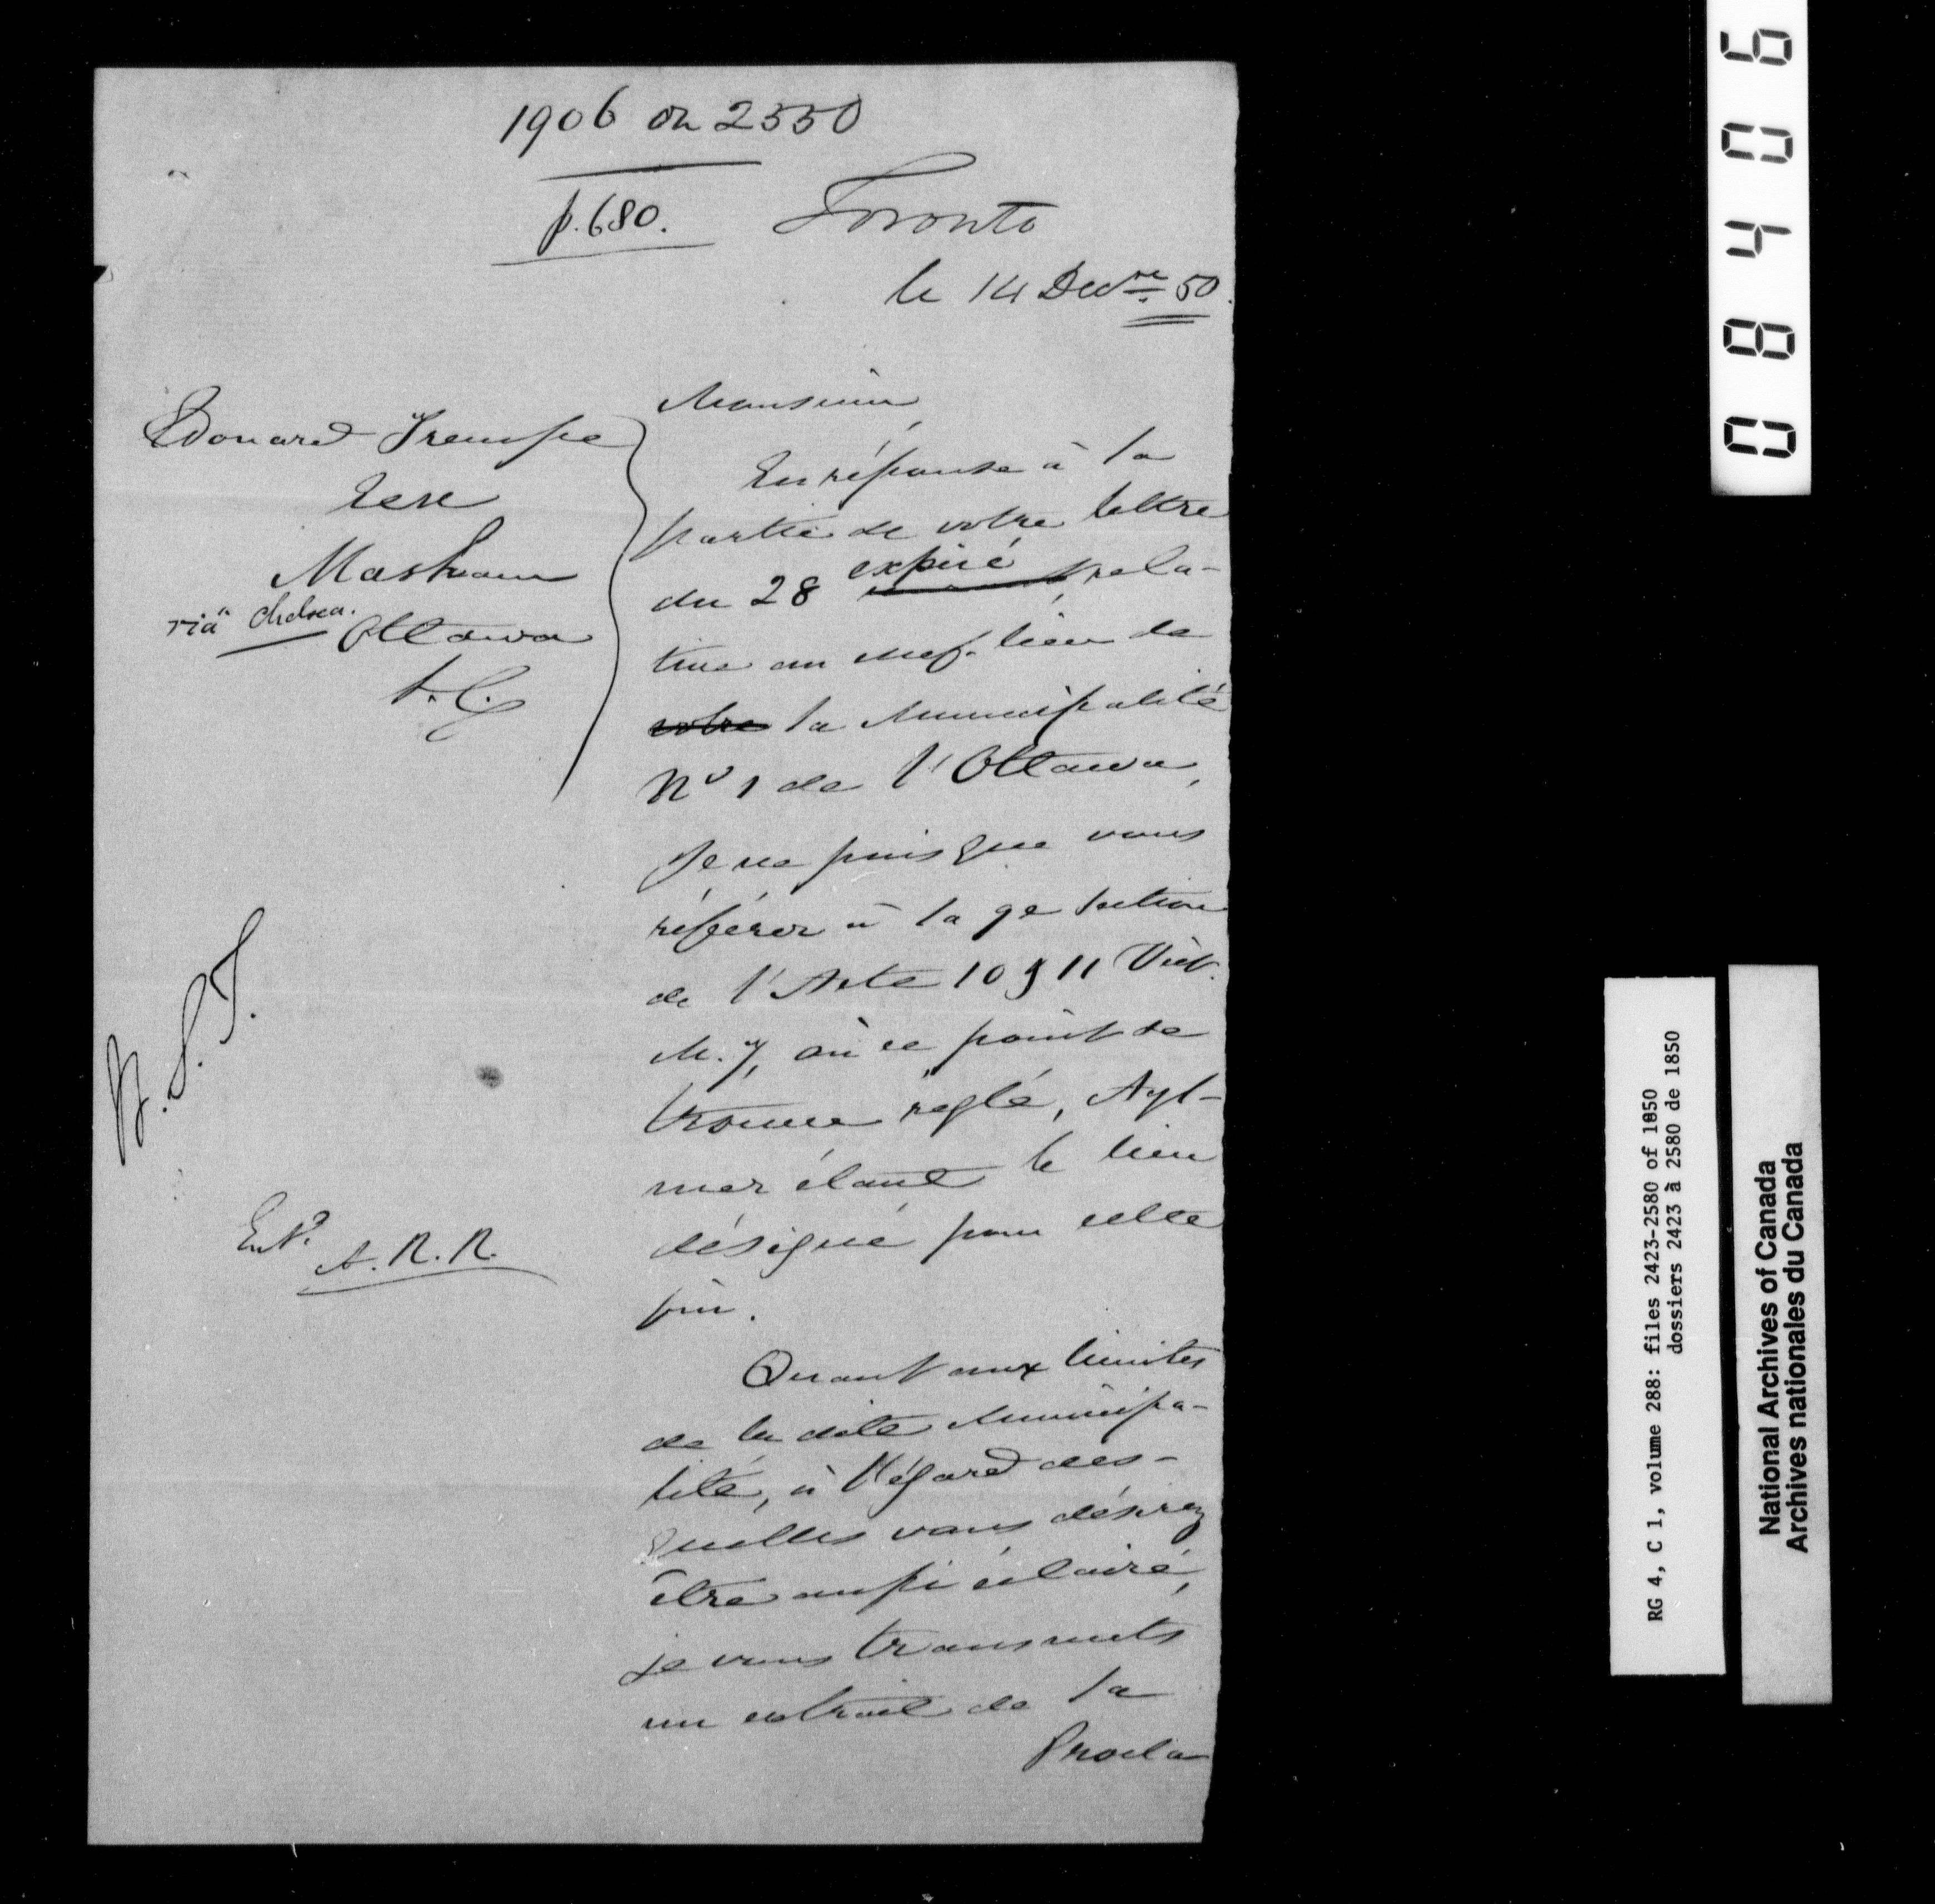 1906 on 2550
p. 680.
Toronto
le 14 Decre 50.
Edouard Trempe
Esre
Masham
viâ Chelsea.
Ottawa
B.S.T.
Ent.
A.R.R.
Monsieur,
En réponse à la
partie de votre lettre
du 28 expiré, rela-
tive au chef-lieu de
votre la Municipalité
No 1 de l'Ottawa,
Je ne puis que vous
référer à la 9e section
de l'Acte 10 & 11 Vict.
ch. 7, où ce point se
trouve réglé, Ayl-
mer étant le lieu
désigné pour cette
fin.
Quant aux limites
de la dite Municipa-
lité, à l'égard des-
quelles vous désirez
être aussi éclairé,
je vous transmets
un extrait de la
Procla
084 06
RG 4, C 1, volume 288: files 2423-2580 of 1850
dossiers 2423 à 2580 de 1850
National Archives of Canada
Archives nationales du Canada